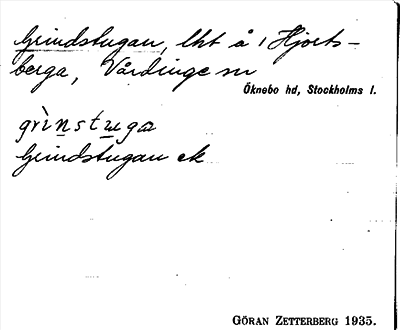 Grindstugan, lht å 1 Hjorts-
berga, Vårdinge sn
Öknebo hd, Stockholms l.
grìnstuga
Grindstugan ek
GÖRAN ZETTERBERG 1935.